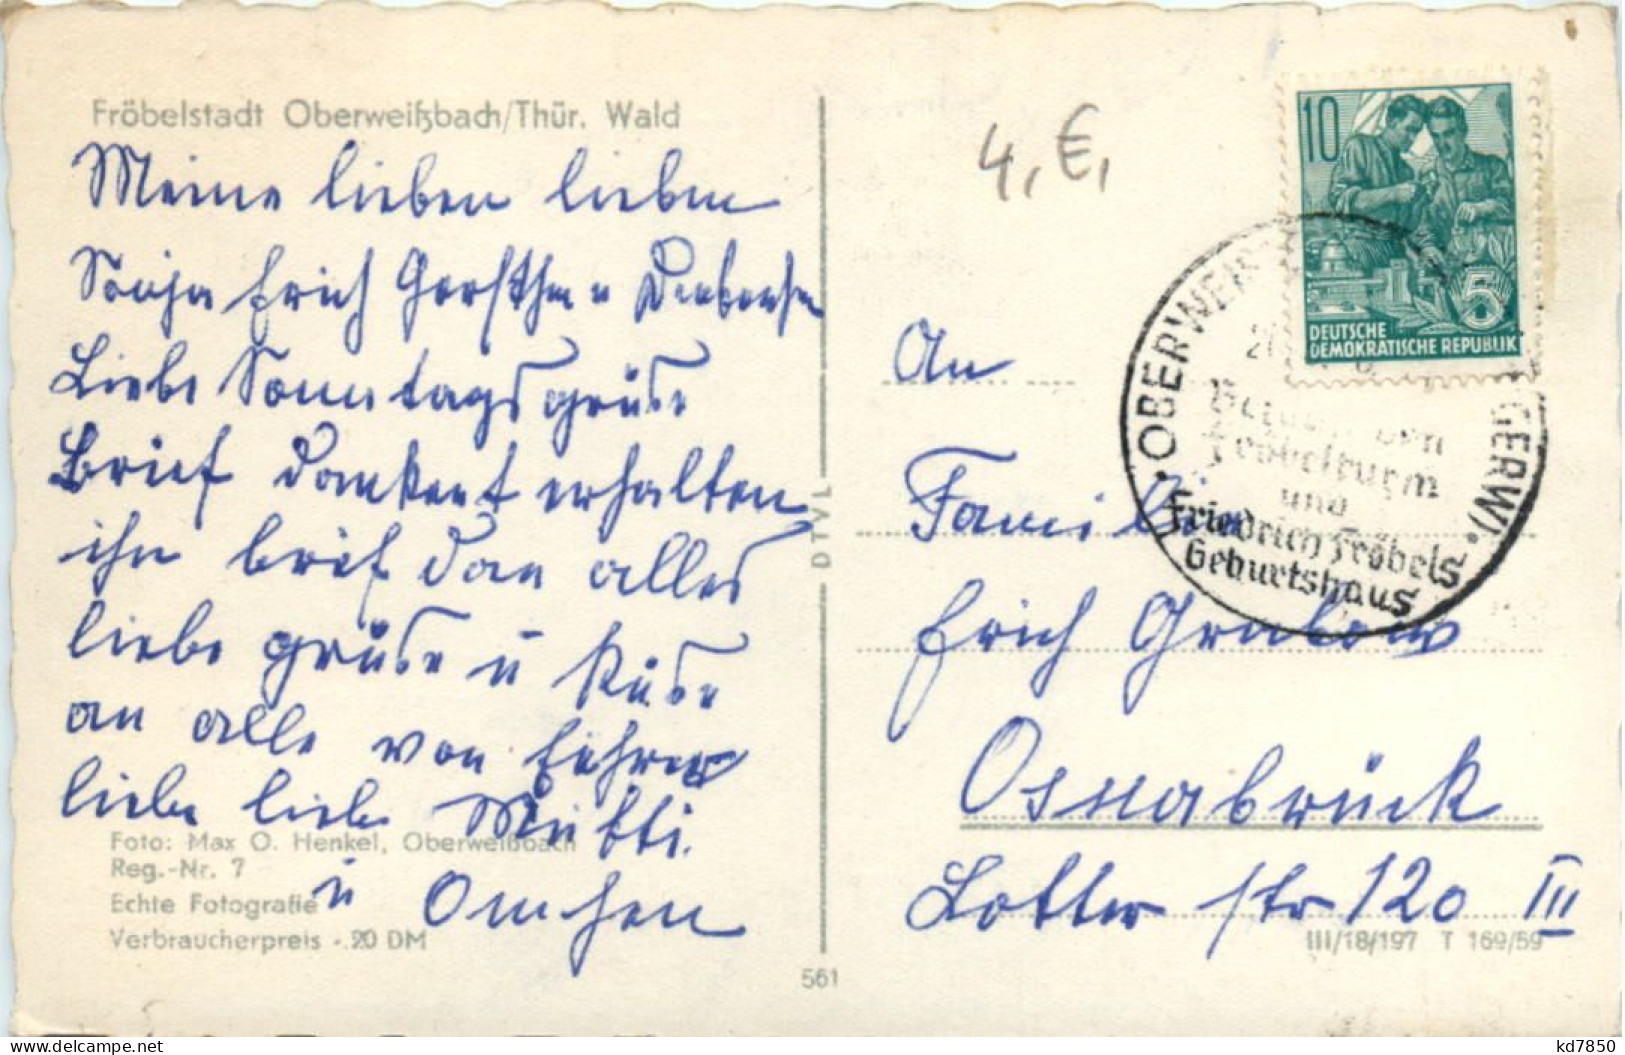 Fröbelstadt Oberweißbach/Thür. Wald
Meine lieben lieben
Erich
Liebe Sonntagsgrüse
Brief dankent erhalten
ihn brif dan alles
liebe grüse u Küse
an alle von
liebe liebe Mutti.
u Omchen
Foto: Max O. Henkel, Oberweißbach
Reg.-Nr. 7
Echte Fotografie
Verbraucherpreis -.20 DM
DTVL
561
4,€,
10
5
DEUTSCHE
DEMOKRATISCHE REPUBLIK
Fröbelturm
und
Friedrich Fröbels
Geburtshaus
An
Familie
Erich Grabow
Osnabrück
Lotter str 120 III
III/18/197 T 169/59
kd7850
www.delcampe.net